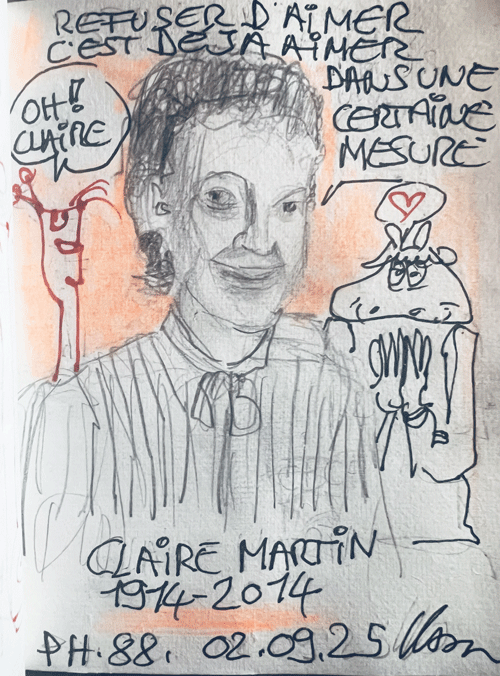 REFUSER D'AiMER
C'EST DEJA AiMER
DANS UNE
CERTAiNE
MESURE
OH!
CLAiRE
CLAiRE MARTiN
1914-2014
PH.88. 02.09.25